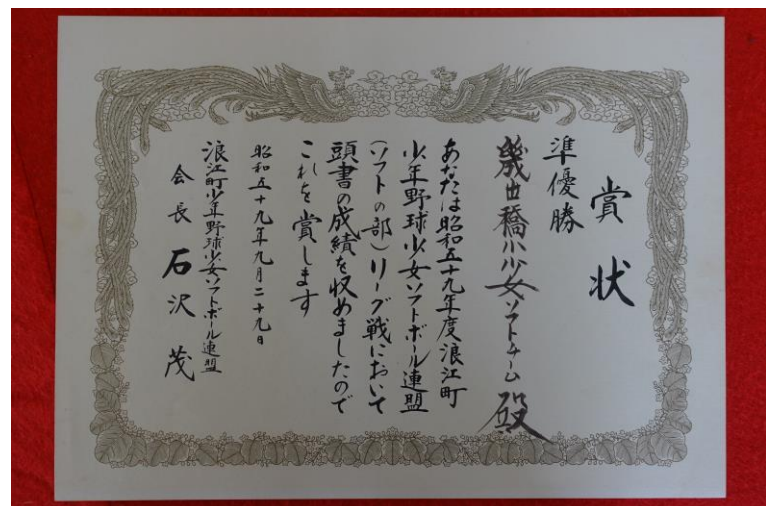 賞状
準優勝
幾世橋小少女ソフトチーム殿
あなたは昭和五十九年度浪江町
少年野球少女ソフトボール連盟
(ソフトの部)リーグ戦において
頭書の成績を収めましたので
これを賞します
昭和五十九年九月二十九日
浪江町少年野球少女ソフトボール連盟
会長 石沢茂